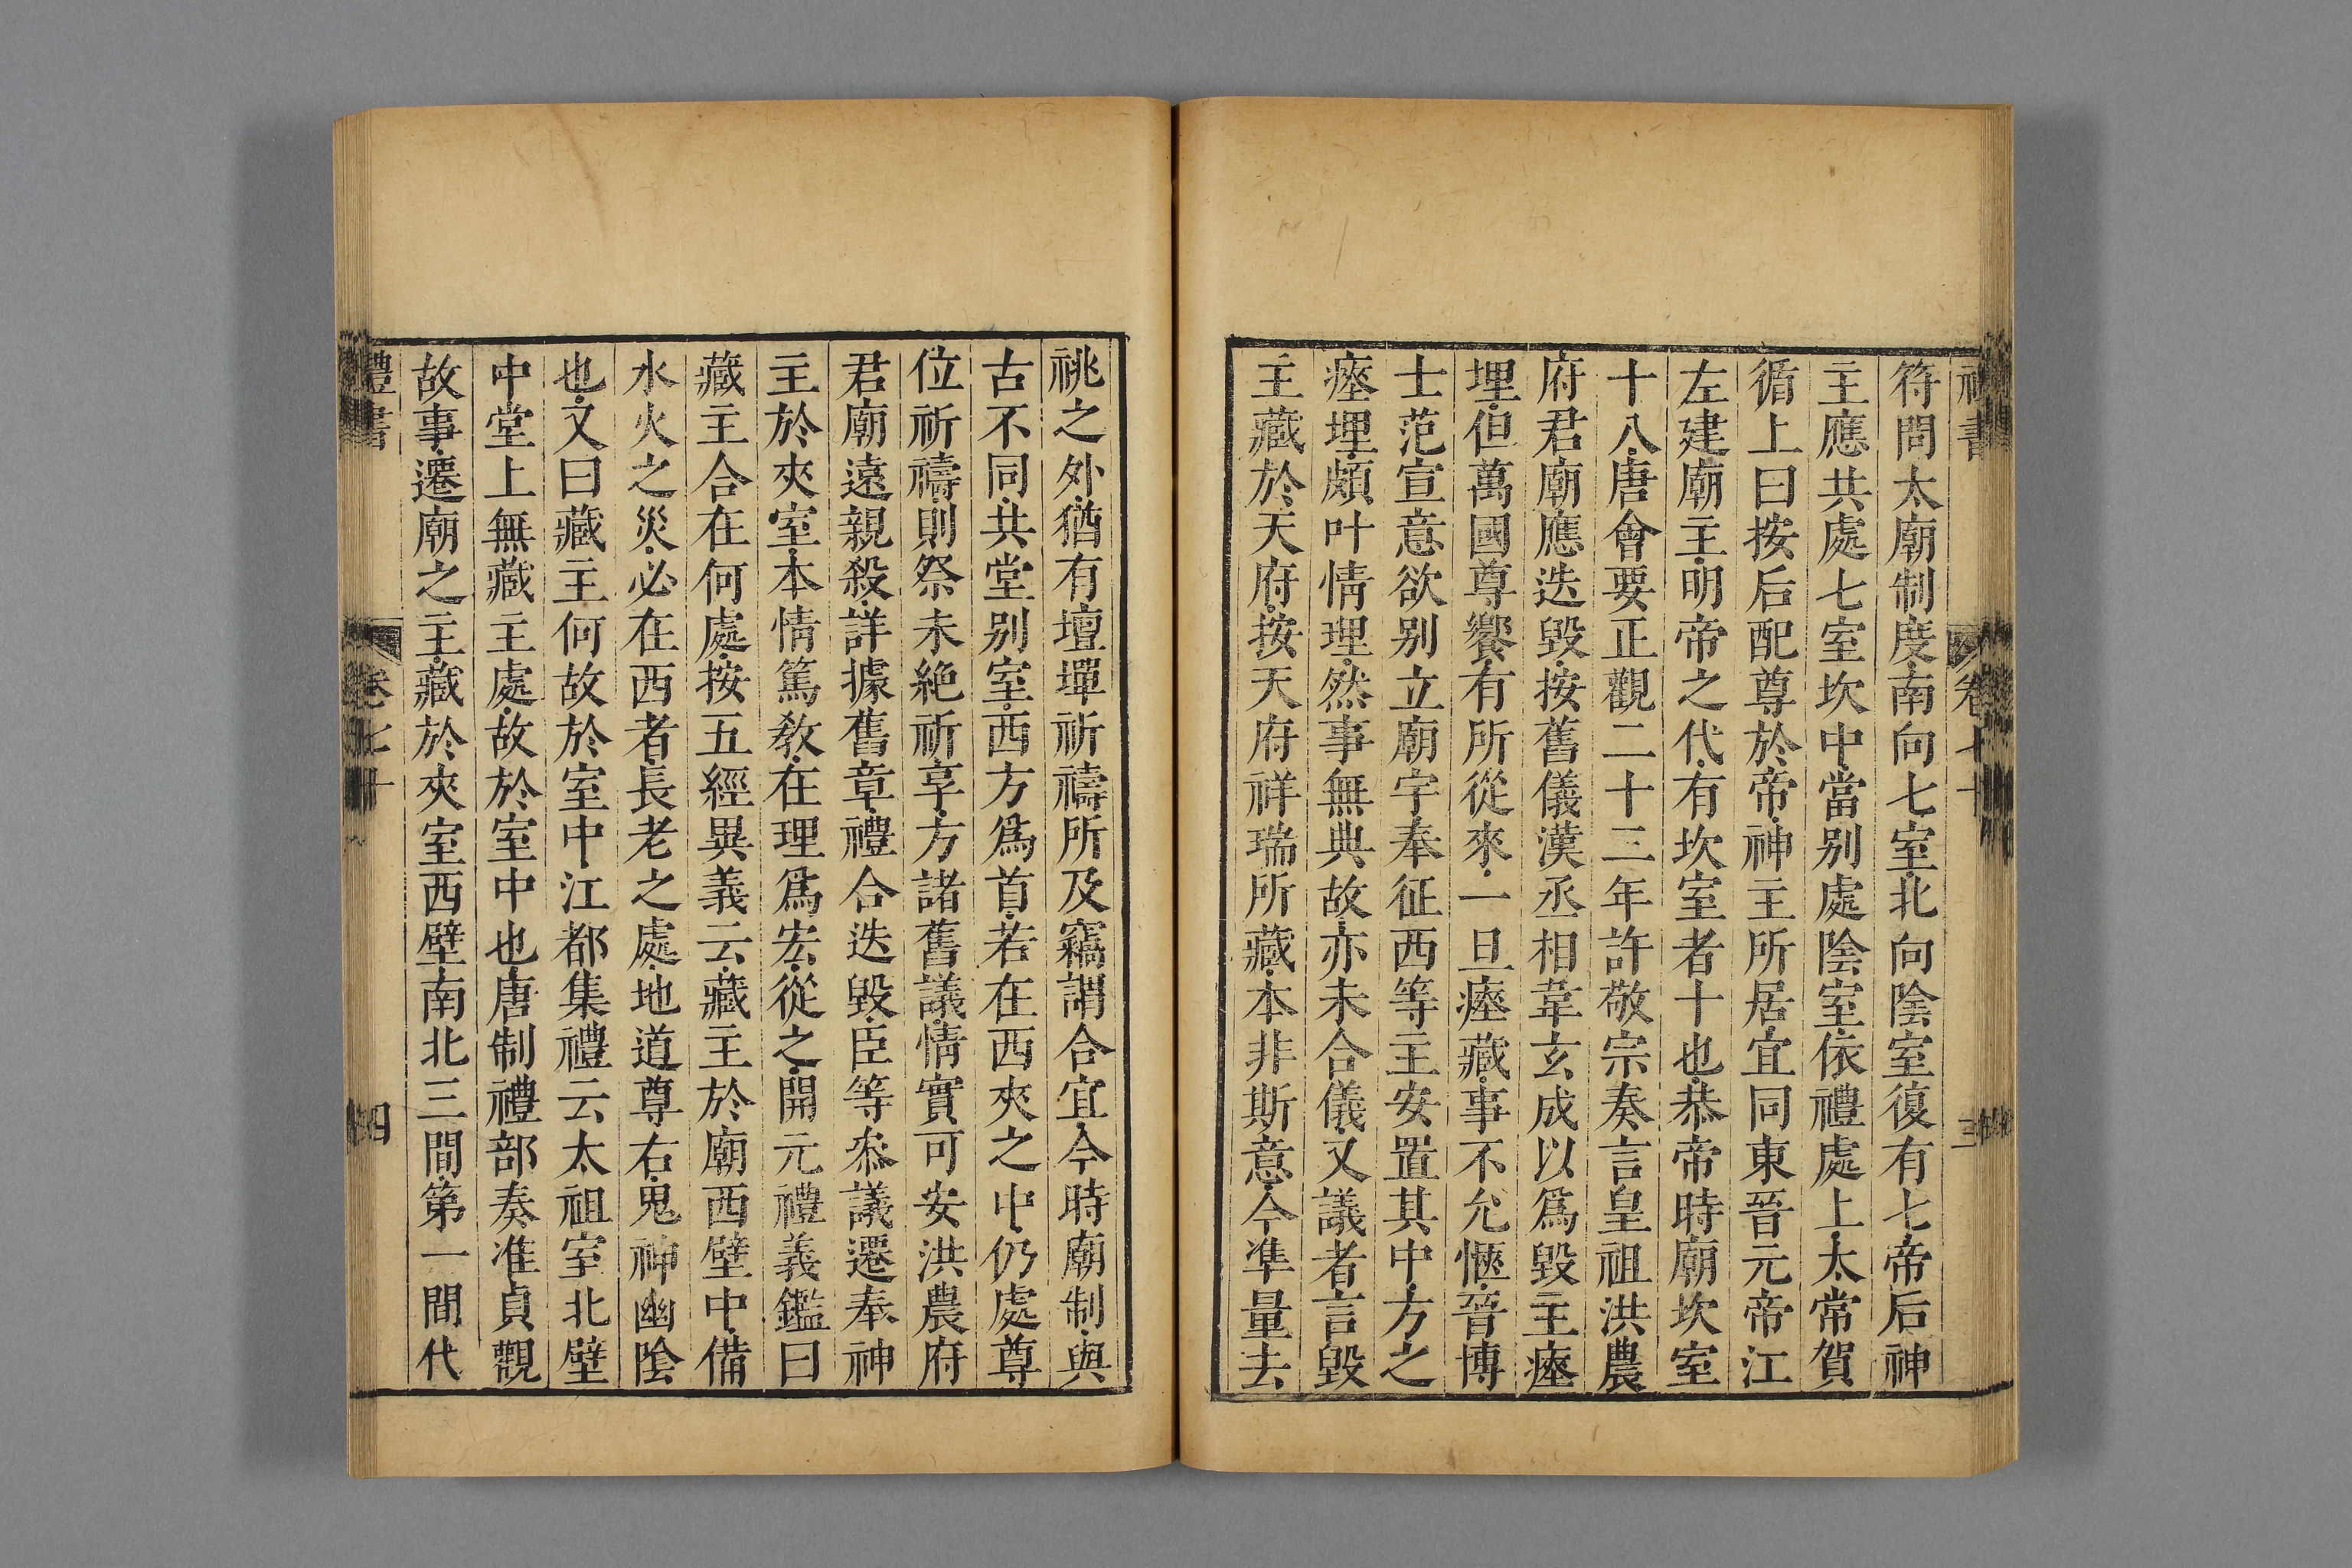 禮書
卷七十
三
符問太廟制度南向七室北向陰室復有七帝后神
主應共處七室坎中當别處陰室依禮處上太常賀
循上曰按后配尊於帝神主所居宜同東晉元帝江
左建廟主明帝之代有坎室者十也恭帝時廟坎室
十八唐會要正觀二十三年許敬宗奏言皇祖洪農
府君廟應迭毀按舊儀漢丞相韋玄成以爲毀主瘞
埋但萬國尊饗有所從來一旦瘞藏事不允愜晉博
士范宣意欲别立廟宇奉征西等主安置其中方之
瘞埋頗叶情理然事無典故亦未合儀又議者言毀
主藏於天府按天府祥瑞所藏本非斯意今準量去
祧之外猶有壇墠祈禱所及竊謂合宜今時廟制與
古不同共堂别室西方爲首若在西夾之中仍處尊
位祈禱則祭未絶祈享方諸舊議情實可安洪農府
君廟遠親殺詳據舊章禮合迭毀臣等叅議遷奉神
主於夾室本情篤敎在理爲宏從之開元禮義鑑曰
藏主合在何處按五經異義云藏主於廟西壁中備
水火之災必在西者長老之處地道尊右鬼神幽陰
也又曰藏主何故於室中江都集禮云太祖室北壁
中堂上無藏主處故於室中也唐制禮部奏准貞觀
故事遷廟之主藏於夾室西壁南北三間第一間代
禮書
卷七十
四